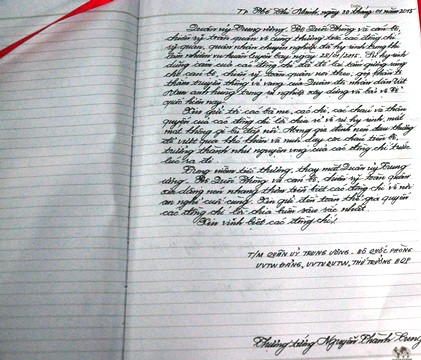 TP Hồ Chí Minh, ngày 30 tháng 01 năm 2015
Quân ủy Trung ương, Bộ Quốc Phòng và cán bộ,
chiến sỹ toàn quân vô cùng thương tiếc các đồng chí
sỹ quan, quân nhân chuyên nghiệp đã hy sinh trong khi
làm nhiệm vụ huấn luyện bay ngày 28/01/2015. Sự hy sinh
dũng cảm của các đồng chí đã để lại tấm gương sáng
cho cán bộ, chiến sỹ toàn quân noi theo, góp phần tô
thắm truyền thống vẻ vang của Quân đội nhân dân Việt
Nam anh hùng trong sự nghiệp xây dựng và bảo vệ Tổ
quốc hiện nay.
Xin gửi tới các bà mẹ, các chị, các cháu và thân
quyến của các đồng chí lời chia sẻ về sự hy sinh, mất
mát không gì bù đắp nổi. Mong gia đình nén đau thương
để vượt qua khó khăn và nuôi dạy các cháu tiến bộ,
trưởng thành như nguyện vọng của các đồng chí trước
lúc ra đi.
Trong niềm tiếc thương, thay mặt Quân ủy Trung
ương, Bộ Quốc Phòng và cán bộ, chiến sỹ toàn quân
xin dâng nén nhang thơm tiễn biệt các đồng chí về nơi
an nghỉ cuối cùng. Xin gửi đến toàn thể gia quyến
các đồng chí lời chia buồn sâu sắc nhất.
Xin vĩnh biệt các đồng chí!
T/M QUÂN ỦY TRUNG ƯƠNG - BỘ QUỐC PHÒNG
UVTW ĐẢNG, UVTVQUTW, THỨ TRƯỞNG BQP
Thượng tướng Nguyễn Thành Cung